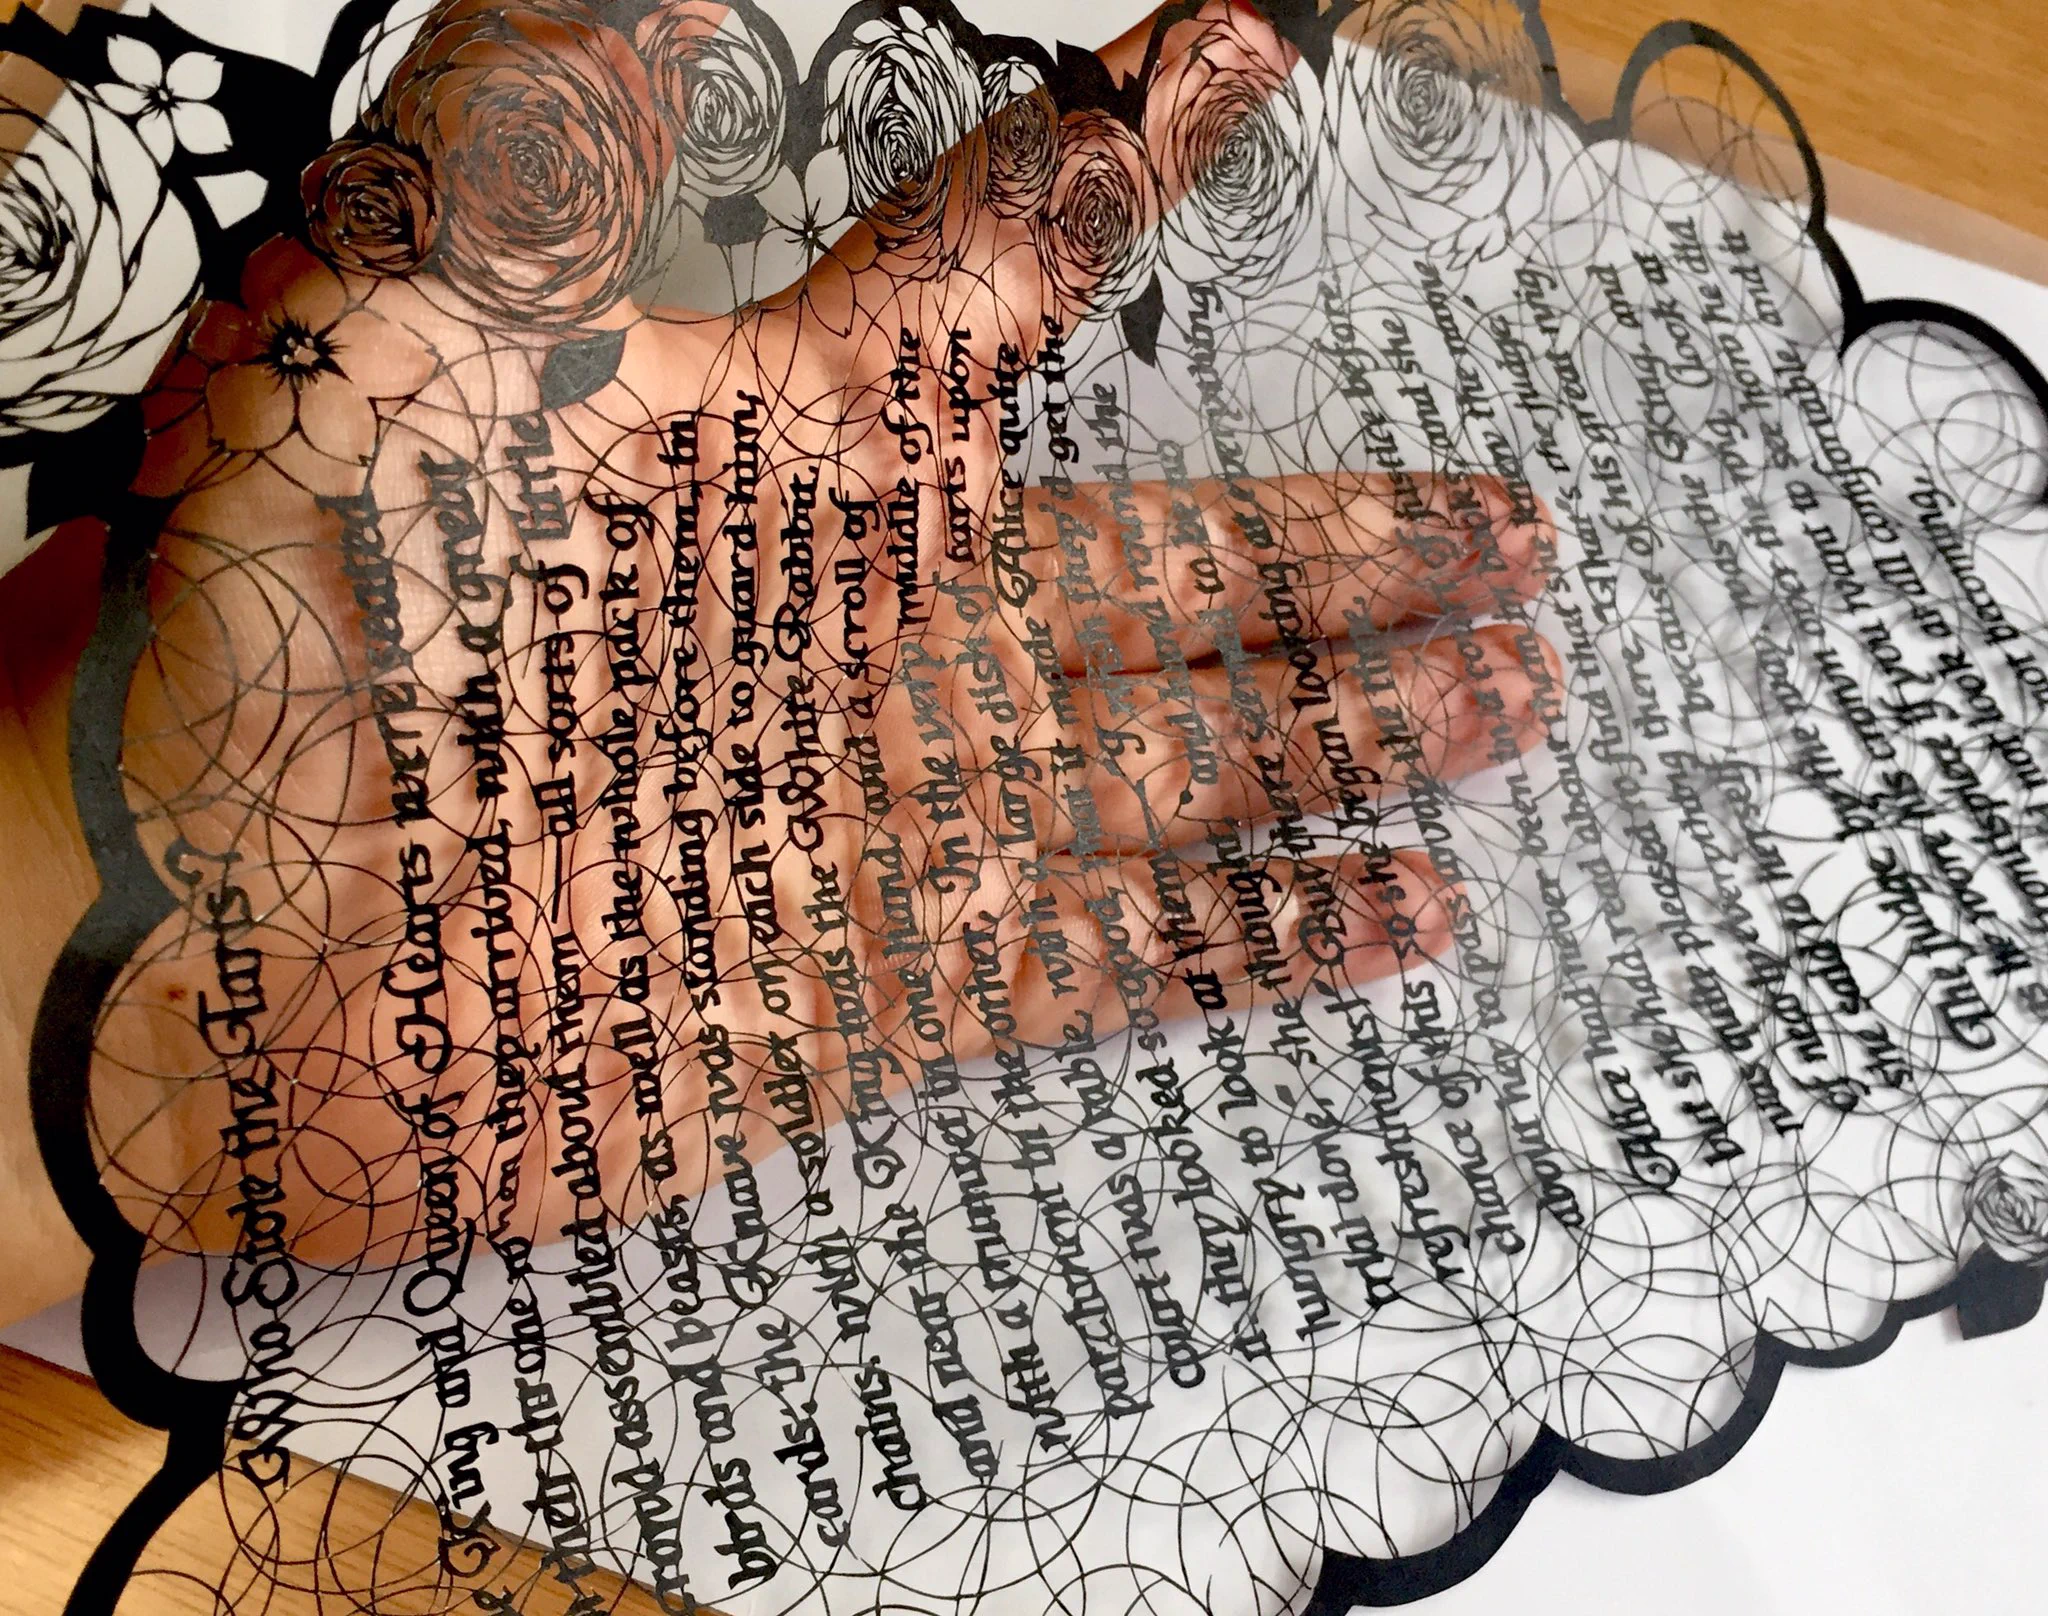 Who Stole the Tarts?
King and Queen of Hearts were seated
their throne when they arrived, with a great
assembled about them — all sorts of little
birds and beasts, as well as the whole pack of
cards: the Knave was standing before them, in
chains, with a soldier on each side to guard him;
and near the King was the White Rabbit,
with a trumpet in one hand, and a scroll of
parchment in the other. In the very middle of the
court was a table, with a large dish of tarts upon
it: they looked so good, that it made Alice quite
hungry to look at them — "I wish they'd get the
trial done," she thought, "and hand round the
refreshments!" But there seemed to be no
chance of this so she began looking at everything
about her to pass away the time.
Alice had never been in a court of justice before,
but she had read about them and she
was quite pleased to find that she knew the name
of nearly everything there. "That's the judge,"
she said to herself, "because of his great wig."
The judge, by the way, was the King; and
as he wore his crown over the wig, (look at
the frontispiece if you want to see how he did
it,) he did not look at all comfortable, and it
not becoming.